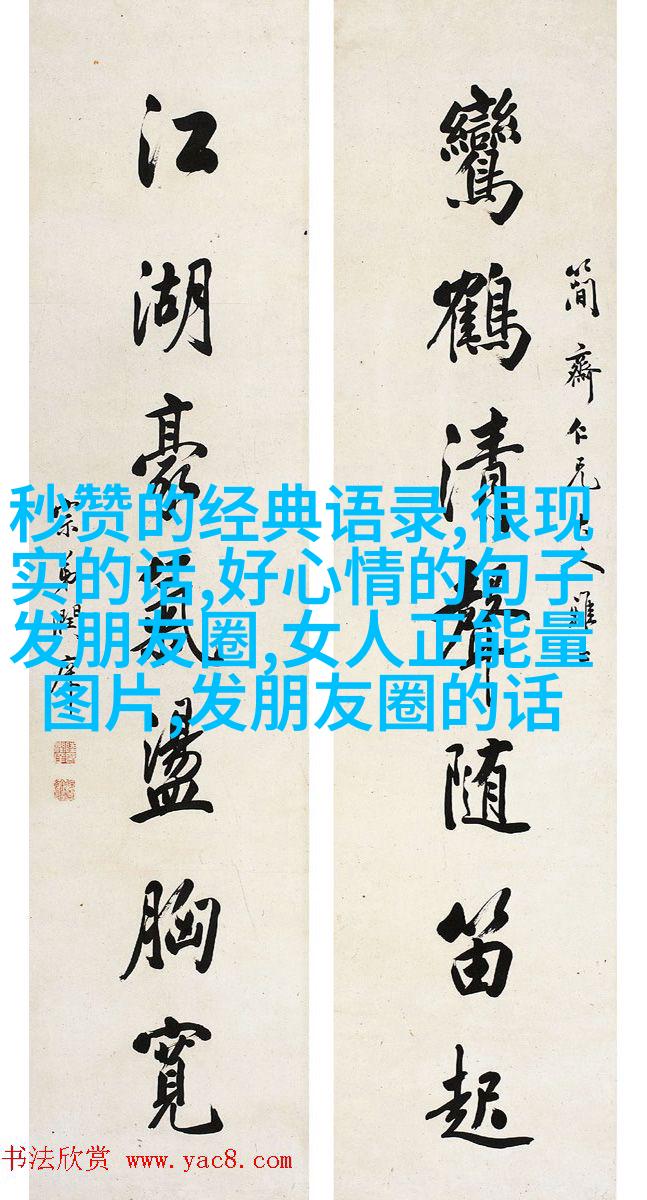 簡齋仁兄大人雅
鸞鶴清聲随笛起
江湖豪氣盪胸寬
宗弟潤庠
秒赞的经典语录,很现
实的话,好心情的句子
发朋友圈,女人正能量
图片,发朋友圈的话
书法欣赏 www.yac8.com